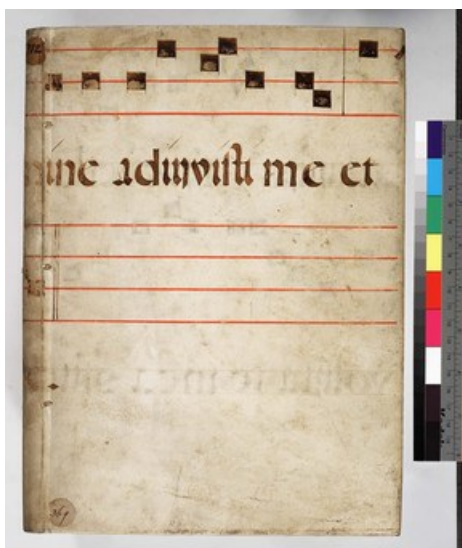 ine adiuvisti me et
369